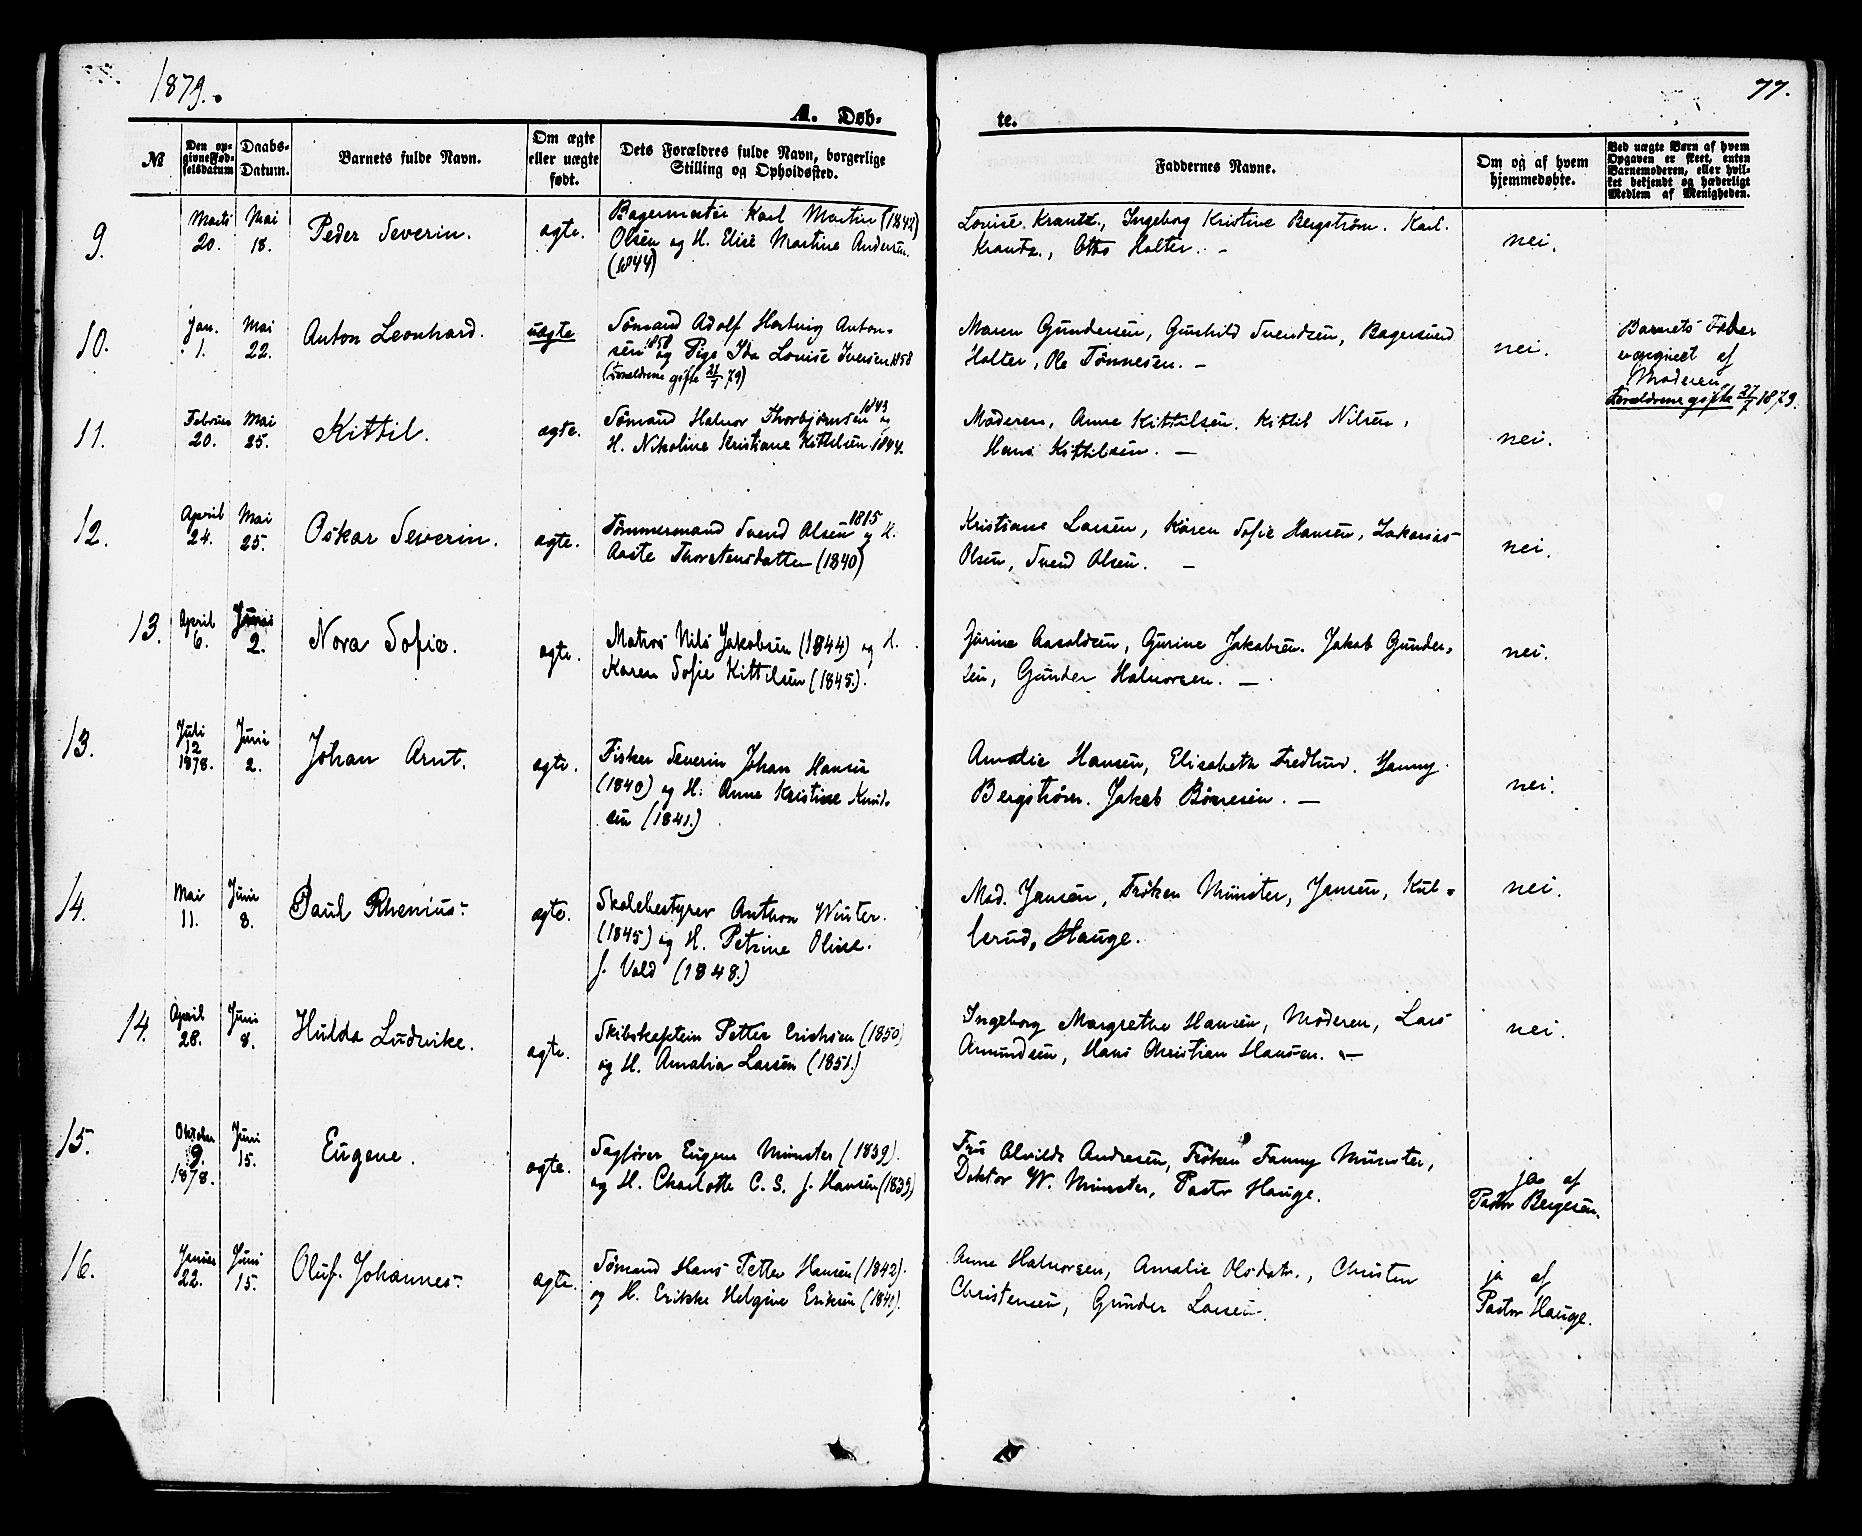 1879.
77.
A. Døb-
te.
No
Den op-
givne Fød-
selsdatum
Daabs-
Datum.
Barnets fulde Navn.
Om ægte
eller uægte
født.
Dets Forældres fulde Navn, borgerlige
Stilling og Opholdssted.
Faddernes Navne.
Om og af hvem
hjemmedøbte.
Ved uægte Børn af hvem
Opgaven er skeet, enten
Barnemoderen, eller hvil-
ket bekjendt og hæderligt
Medlem af Menigheden.
9.
Marts
20.
Mai
18.
Peder Severin.
ægte.
Bagermester Karl Martin (1842)
Olsen og H. Elise Martine Andersen
(1844)
Louise Krantz., Ingeborg Kristine Bergstrøm. Karl.
Krantz., Otto Holter. -
nei.
10.
Jan.
1.
Mai
22.
Anton Leonhard.
uægte
Sømand Adolf Hartvig Anton-
sen 1858 og Pige Ida Louise Iversen 1858
(Forældrene gifte 27/7 79)
Maren Gundersen, Gunhild Svendsen, Bagersvend
Holter, Ole Tønnesen. -
nei.
Barnets Fader
er opgivet af
Moderen
Forældrene gifte 27/7 1879.
11.
Februar
20.
Mai
25.
Kittil.
ægte.
Sømand Halvor Thorbjørnsen 1843 og
H. Nikoline Kristiane Kittilsen 1844.
Moderen, Anne Kittilsen. Kittil Nilsen,
Hans Kittilsen. -
nei.
12.
April
24.
Mai
25.
Oskar Severin.
ægte.
Tømmermand Svend Olsen 1815 og H.
Aaste Thorstensdatter (1840)
Kristiane Larsen, Karen Sofie Hansen, Zakarias
Olsen, Svend Olsen. -
nei.
13.
April
6.
Juni
2.
Nora Sofie.
ægte.
Matros Nils Jakobsen (1844) og H.
Karen Sofie Kittilsen (1845.).
Jørine Aasoldsen, Gurine Jakobsen. Jakob Gunder-
sen, Gunder Halvorsen. -
nei.
13.
Juli
12
1878.
Juni
2.
Johan Arnt.
ægte.
Fisker Severin Johan Hansen
(1840) og H. Anne Kristine Knud-
sen (1841.)
Amalie Hansen, Elisabeth Fredlund. Hanny
Bergstrøm. Jakob Børresen. -
nei.
14.
Mai
11.
Juni
8.
Paul Rhenius.
ægte.
Skolebestyrer Anthon Winter.
(1845) og H. Petrine Olise.
f. Vold (1848.)
Mad. Jansen, Frøken Münster, Jansen, Kul-
lerud, Hauge.
nei.
14.
April
28.
Juni
8.
Hulda Ludvike.
ægte.
Skibskaptein Petter Erichsen (1850)
og H. Amalia Larsen (1851.)
Ingeborg Margrethe Hansen, Moderen, Lars
Amundsen, Hans Christian Hansen. -
nei.
15.
Oktober
9.
1878.
Juni
15.
Eugene.
ægte.
Sagfører Eugene Münster (1839).
og H. Charlotte C. S. f. Hansen (1839)
Fru Alvilde Andresen, Frøken Fanny Münster,
Doktor W. Münster, Pastor Hauge.
ja af
Pastor Bergesen.
16.
Januar
22.
Juni
15.
Oluf Johannes.
ægte.
Sømand Hans Petter Hansen (1842).
og H. Erikke Helgine Eriksen (1840).
Anne Halvorsen, Amalie Olsdatr., Christen
Christensen, Gunder Larsen.
ja af
Pastor Hauge.